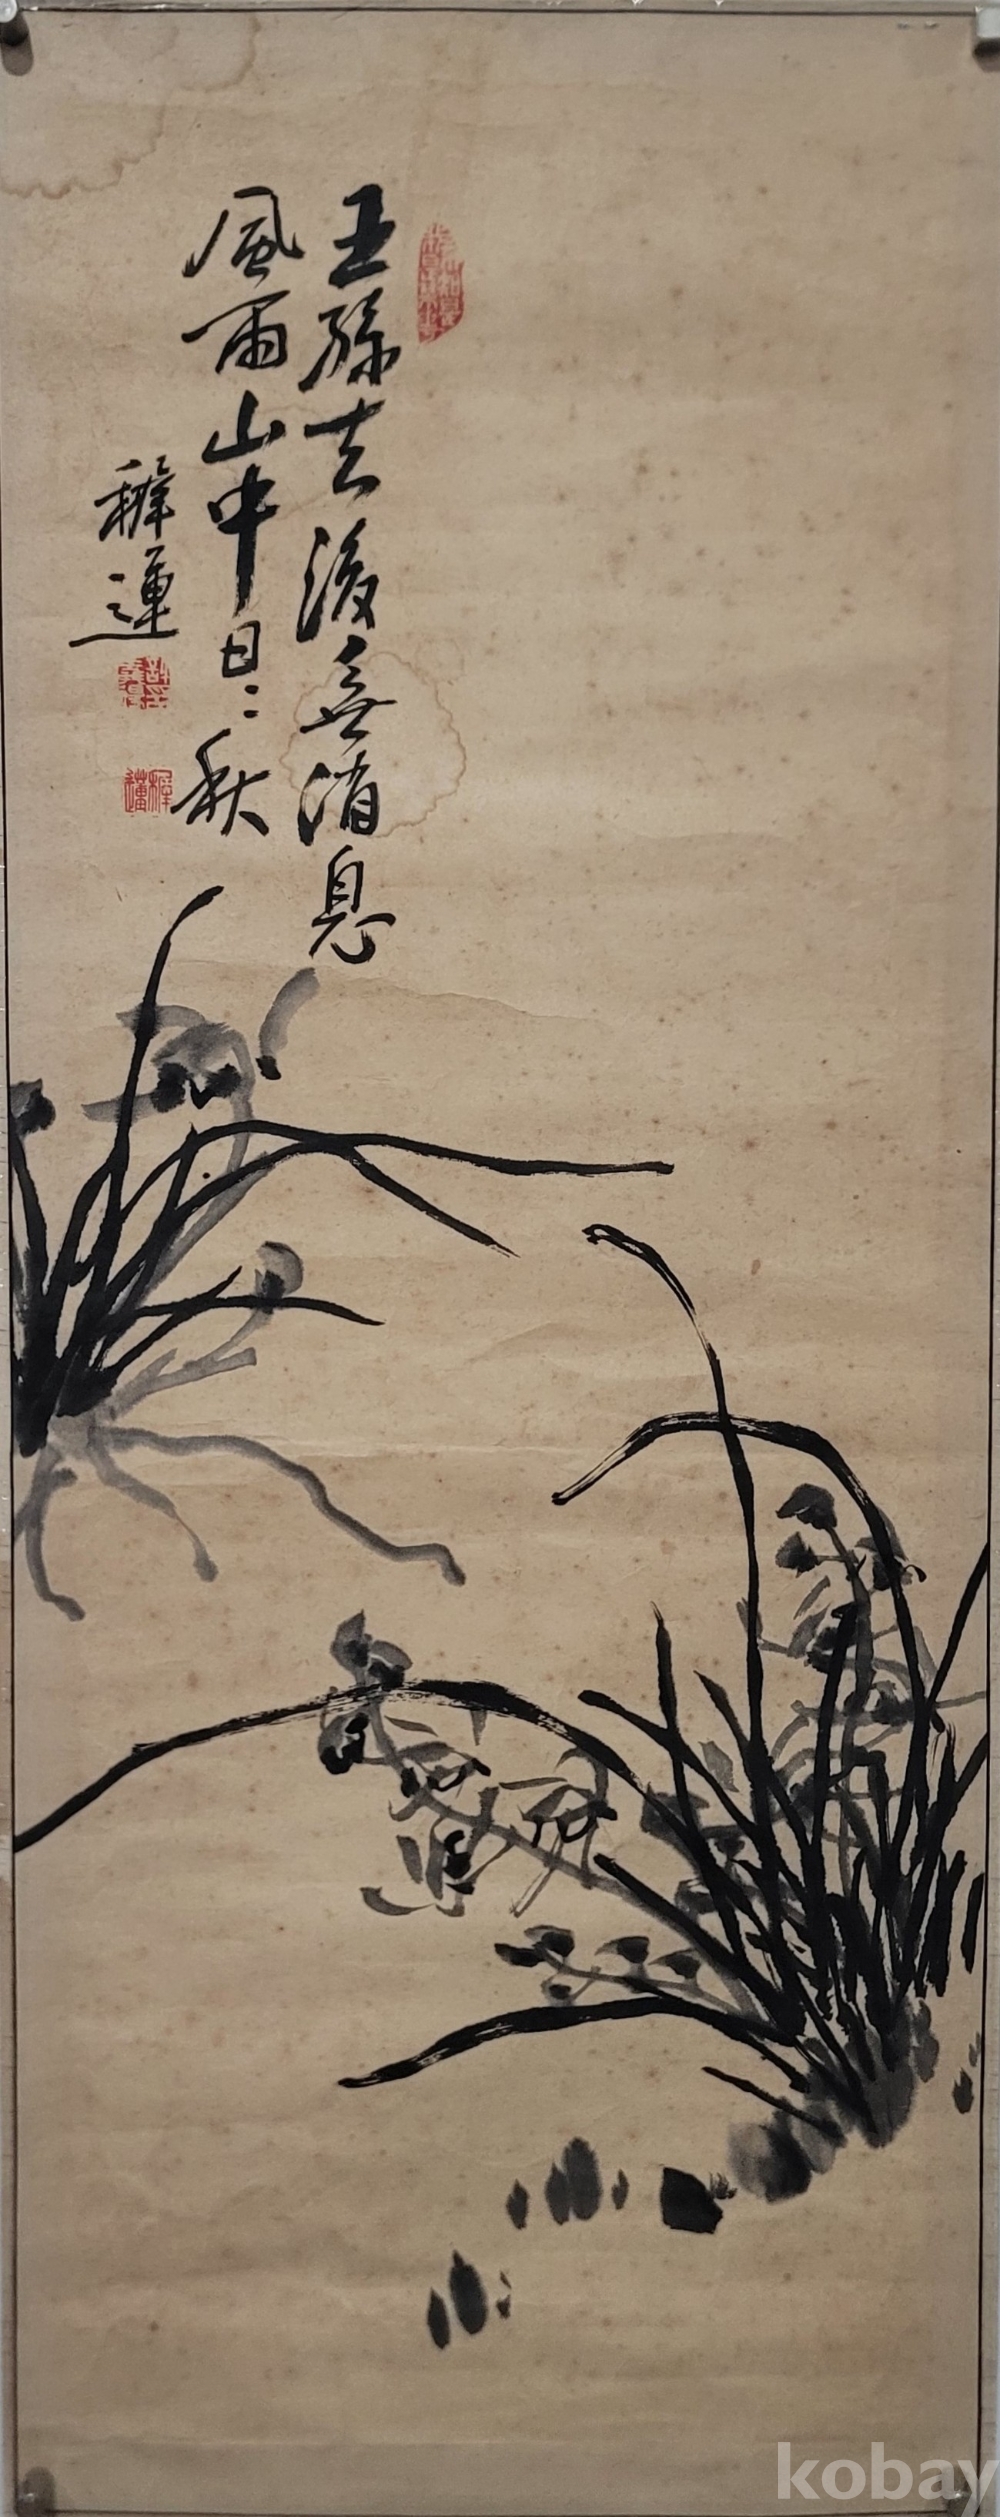 王孫去後無消息
風雨山中日〻秋
kobay